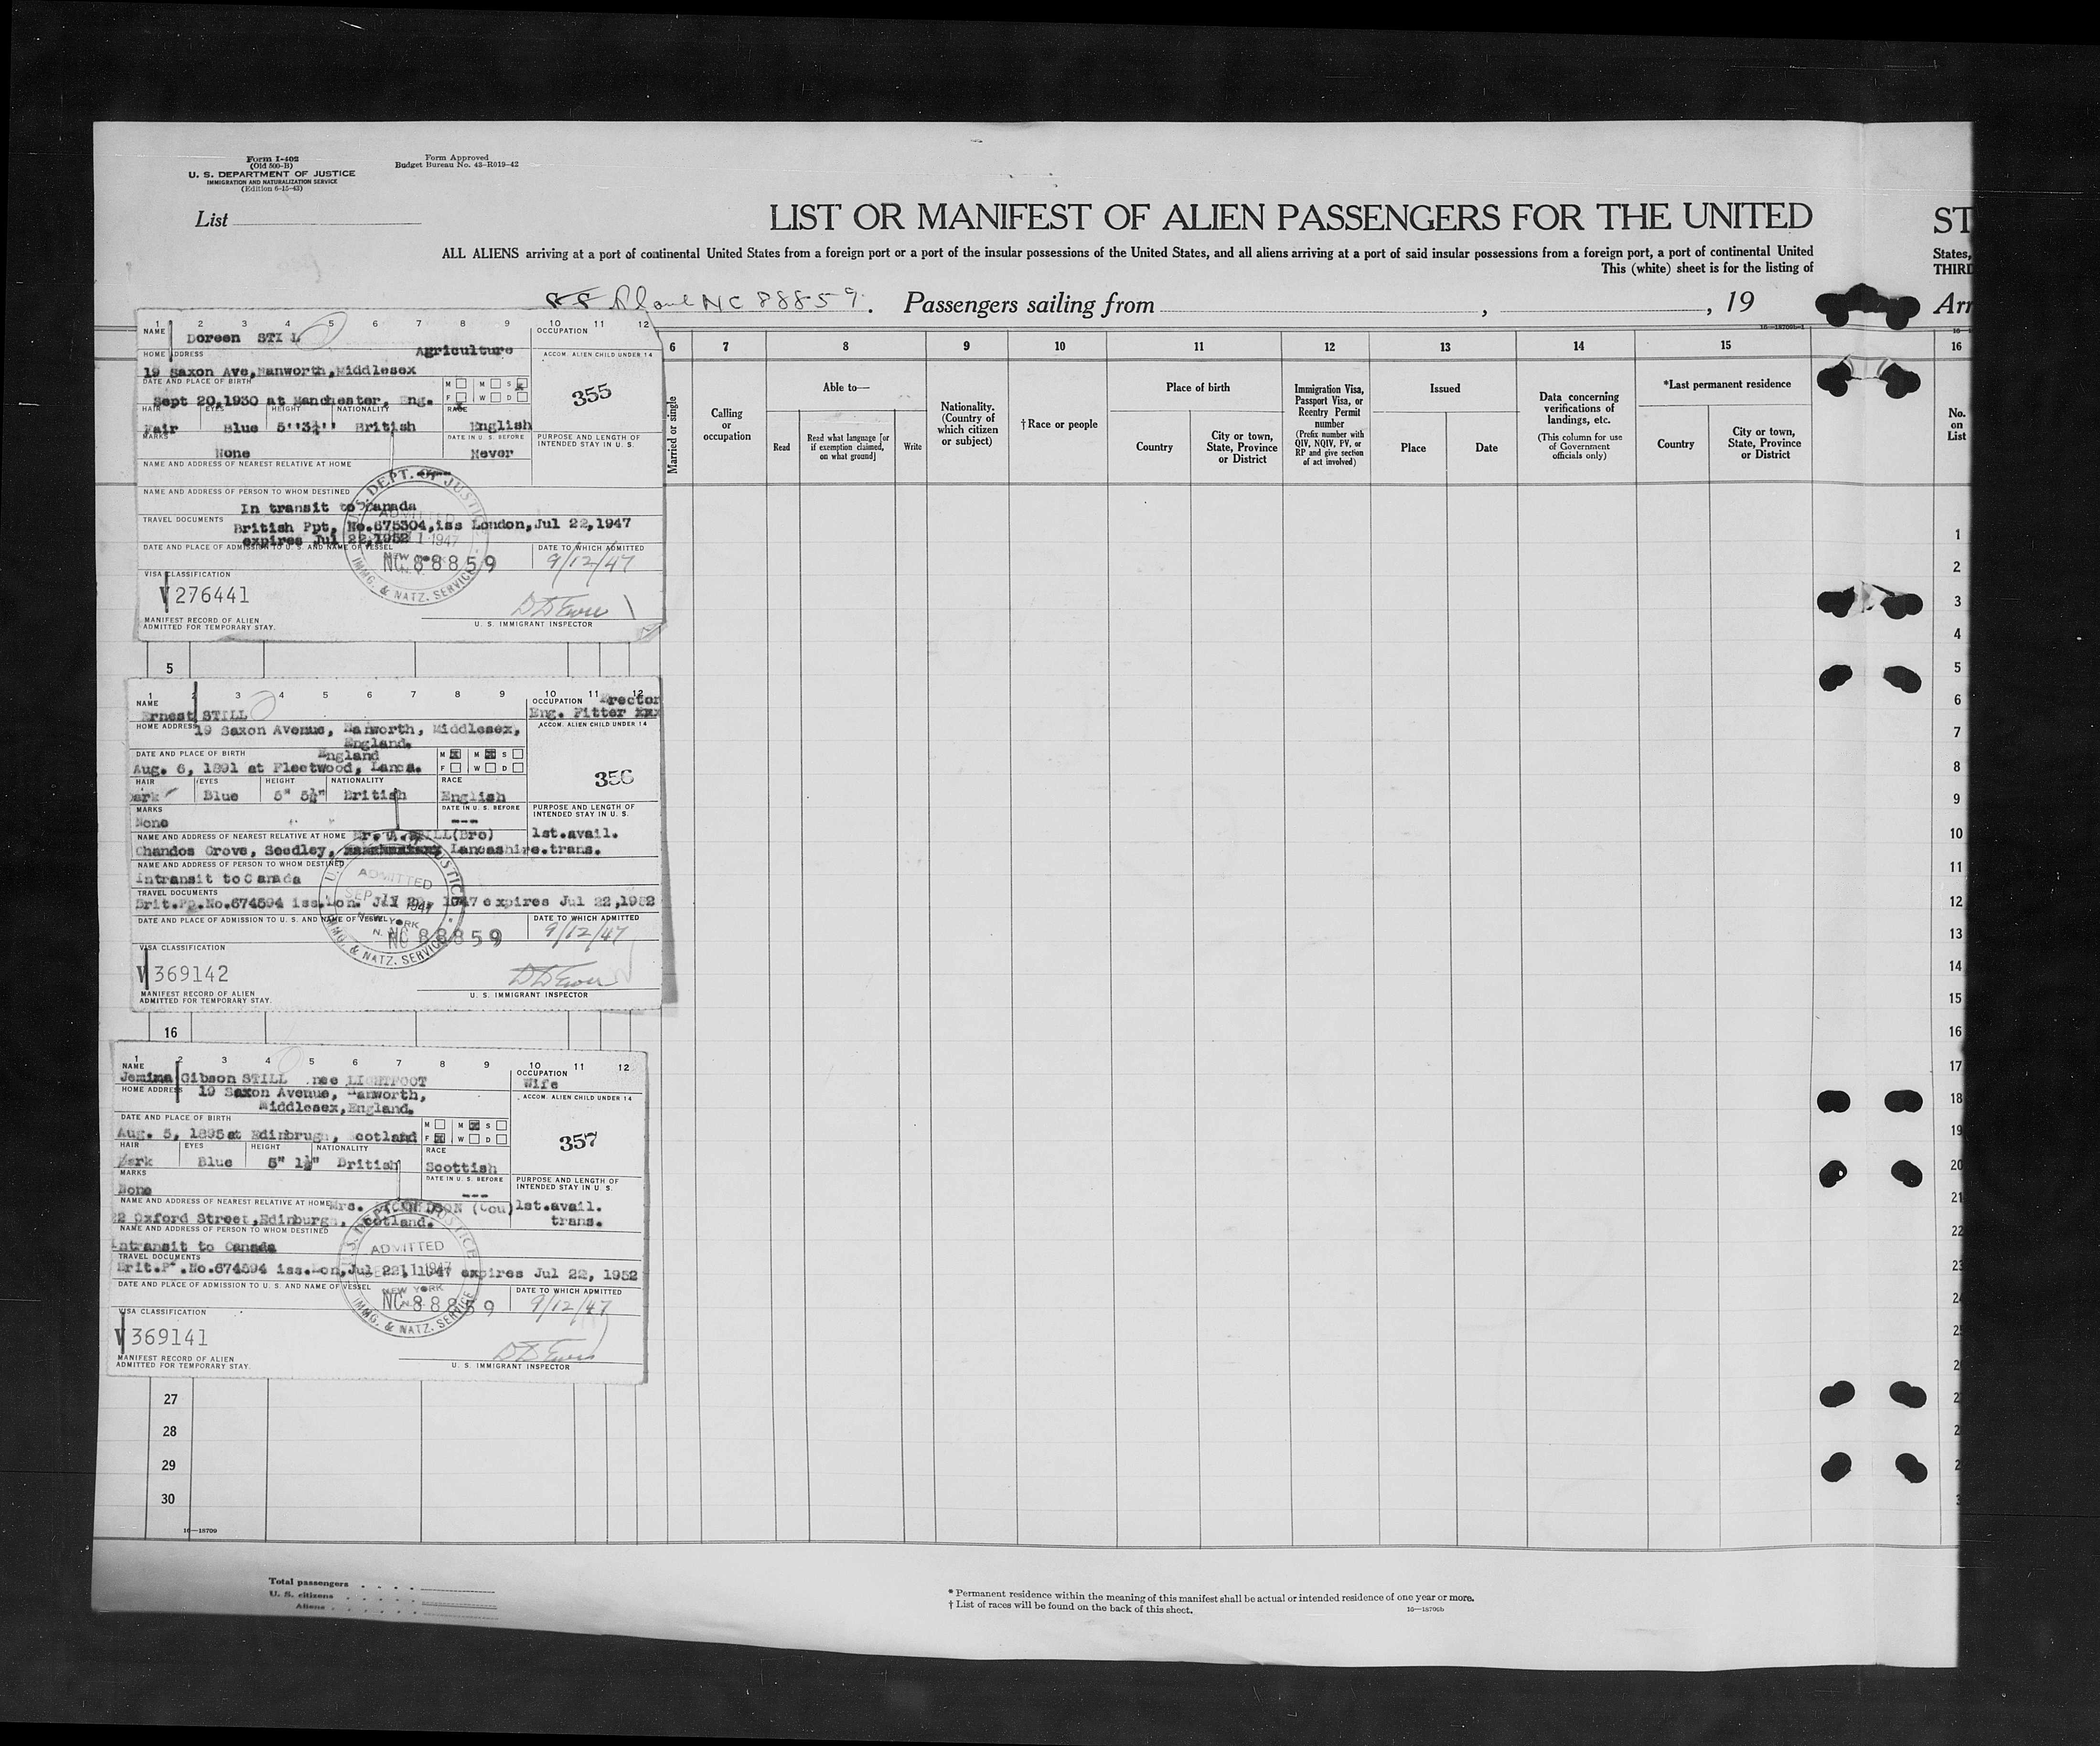 Form I-402
(Old 500-B)
U. S. DEPARTMENT OF JUSTICE
IMMIGRATION AND NATURALIZATION SERVICE
(Edition 6-15-43)
Form Approved
Budget Bureau No. 43-R019-42
List
LIST OR MANIFEST OF ALIEN PASSENGERS FOR THE UNITED
ST
ALL ALIENS arriving at a port of continental United States from a foreign port or a port of the insular possessions of the United States, and all aliens arriving at a port of said insular possessions from a foreign port, a port of continental United
States,
This (white) sheet is for the listing of
THIRD
Plane NC 88859. Passengers sailing from , , 19
Arr
16—18709b-1
1 2 3 4 5 6 7 8 9 10 11 12
NAME OCCUPATION
Doreen STI L
HOME ADDRESS Agriculture ACCOM. ALIEN CHILD UNDER 14
19 Saxon Ave, Hanworth, Middlesex
DATE AND PLACE OF BIRTH M M S
Sept 20, 1930 at Manchester, Eng. F W D
355
HAIR EYES HEIGHT NATIONALITY RACE
Fair Blue 5''3½'' British English
MARKS DATE IN U. S. BEFORE PURPOSE AND LENGTH OF
INTENDED STAY IN U. S.
None Never
NAME AND ADDRESS OF NEAREST RELATIVE AT HOME
NAME AND ADDRESS OF PERSON TO WHOM DESTINED
In transit to Canada
TRAVEL DOCUMENTS British Ppt, No.675304, iss London, Jul 22, 1947
expires Jul 22, 1952
DATE AND PLACE OF ADMISSION TO U. S. AND NAME OF VESSEL DATE TO WHICH ADMITTED
NC 88859 9/12/47
U.S. DEPT. OF JUSTICE
ADMITTED
1947
NEW YORK
IMMG. & NATZ. SERVICE
VISA CLASSIFICATION
V 276441
MANIFEST RECORD OF ALIEN
ADMITTED FOR TEMPORARY STAY.
U. S. IMMIGRANT INSPECTOR
5
1 2 3 4 5 6 7 8 9 10 11 12
NAME OCCUPATION Erector
Ernest STILL Eng. Fitter xxx
HOME ADDRESS 19 Saxon Avenue, Hanworth, Middlesex, ACCOM. ALIEN CHILD UNDER 14
England.
DATE AND PLACE OF BIRTH England M X M X S
Aug. 6, 1891 at Fleetwood, Lancs. F W D
356
HAIR EYES HEIGHT NATIONALITY RACE
Dark Blue 5" 5½" British English
MARKS DATE IN U. S. BEFORE PURPOSE AND LENGTH OF
INTENDED STAY IN U. S.
None ---
NAME AND ADDRESS OF NEAREST RELATIVE AT HOME STILL(Bro) 1st.avail.
Chandos Grove, Seedley, Lancashire. trans.
NAME AND ADDRESS OF PERSON TO WHOM DESTINED
Intransit to Canada
TRAVEL DOCUMENTS
Brit.Pp.No.674594 iss.Lon. Jul 22, 1947 expires Jul 22, 1952
DATE AND PLACE OF ADMISSION TO U. S. AND NAME OF VESSEL DATE TO WHICH ADMITTED
NC 88859 9/12/47
ADMITTED
SEP 11 1947
NEW YORK
N.
IMMG. & NATZ. SERVICE
VISA CLASSIFICATION
V 369142
MANIFEST RECORD OF ALIEN
ADMITTED FOR TEMPORARY STAY.
U. S. IMMIGRANT INSPECTOR
16
1 2 3 4 5 6 7 8 9 10 11 12
NAME OCCUPATION
Jemima Gibson STILL nee LIGHTFOOT Wife
HOME ADDRESS 19 Saxon Avenue, Hanworth, ACCOM. ALIEN CHILD UNDER 14
Middlesex, England.
DATE AND PLACE OF BIRTH M M X S
Aug. 5, 1895 at Edinbrugh, Scotland F X W D
357
HAIR EYES HEIGHT NATIONALITY RACE
Dark Blue 5" 1½" British Scottish
MARKS DATE IN U. S. BEFORE PURPOSE AND LENGTH OF
INTENDED STAY IN U. S.
None ---
NAME AND ADDRESS OF NEAREST RELATIVE AT HOME Mrs. (Cou) 1st.avail.
22 Oxford Street, Edinburgh, Scotland. trans.
NAME AND ADDRESS OF PERSON TO WHOM DESTINED
Intransit to Canada
TRAVEL DOCUMENTS
Brit.P .No.674594 iss.Lon, Jul 22, 1947 expires Jul 22, 1952
DATE AND PLACE OF ADMISSION TO U. S. AND NAME OF VESSEL DATE TO WHICH ADMITTED
NC 88859 9/12/47
U.S. DEPT. OF JUSTICE
ADMITTED
SEP 11 1947
NEW YORK
IMMG. & NATZ. SERVICE
VISA CLASSIFICATION
V 369141
MANIFEST RECORD OF ALIEN
ADMITTED FOR TEMPORARY STAY.
U. S. IMMIGRANT INSPECTOR
27
28
29
30
16—18709
6 7 8 9 10 11 12 13 14 15 16
Married or single
Calling
or
occupation
Able to—
Read
Read what language [or
if exemption claimed,
on what ground]
Write
Nationality.
(Country of
which citizen
or subject)
†Race or people
Place of birth
Country
City or town,
State, Province
or District
Immigration Visa,
Passport Visa, or
Reentry Permit
number
(Prefix number with
QIV, NQIV, PV, or
RP and give section
of act involved)
Issued
Place
Date
Data concerning
verifications of
landings, etc.
(This column for use
of Government
officials only)
*Last permanent residence
Country
City or town,
State, Province
or District
No.
on
List
1
2
3
4
5
6
7
8
9
10
11
12
13
14
15
16
17
18
19
20
21
22
23
24
25
2
2
2
2
3
Total passengers
U. S. citizens
Aliens
* Permanent residence within the meaning of this manifest shall be actual or intended residence of one year or more.
† List of races will be found on the back of this sheet.
16—18709b